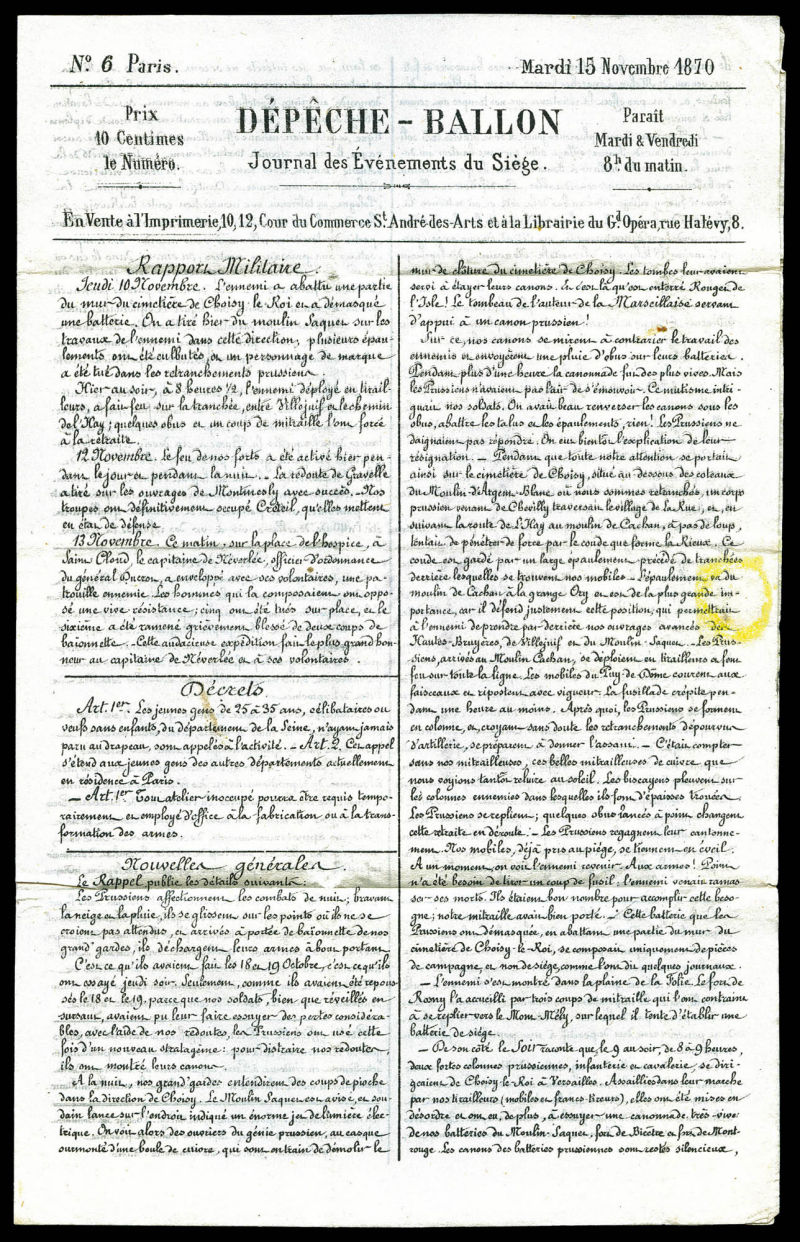 Nº 6 Paris.
Mardi 15 Novembre 1870
Prix
10 Centimes
le Numéro.
DÉPÊCHE-BALLON
Journal des Événements du Siège.
Paraît
Mardi & Vendredi
8h. du matin.
En Vente à l'Imprimerie, 10, 12, Cour du Commerce St. André-des-Arts et à la Librairie du Gd. Opéra, rue Halévy, 8.
Rapport Militaire.
Jeudi 10 Novembre. L'ennemi a abattu une partie
du mur du cimetière de Choisy-le-Roi et a démasqué
une batterie. On a tiré hier du moulin Saquet sur les
travaux de l'ennemi dans cette direction; plusieurs épau-
lements ont été culbutés et un personnage de marque
a été tué dans les retranchements prussiens.
Hier au soir, à 8 heures ½, l'ennemi déployé en tirail-
leurs, a fait feu sur la tranchée, entre Villejuif et le chemin
de l'Hay; quelques obus et un coup de mitraille l'ont forcé
à la retraite.
12 Novembre. Le feu de nos forts a été activé hier pen-
dant le jour et pendant la nuit. - La redoute de Gravelle
a tiré sur les ouvrages de Montmesly avec succès. - Nos
troupes ont définitivement occupé Créteil, qu'elles mettent
en état de défense.
13 Novembre. Ce matin, sur la place de l'hospice, à
Saint Cloud, le capitaine de Néverlée, officier d'ordonnance
du général Ducrot, a enveloppé avec ses volontaires, une pa-
trouille ennemie. Les hommes qui la composaient ont oppo-
sé une vive résistance; cinq ont été tués sur place, et le
sixième a été ramené grièvement blessé de deux coups de
baïonnette. - Cette audacieuse expédition fait le plus grand hon-
neur au capitaine de Néverlée et à ses volontaires.
Décrets.
Art. 1er. Les jeunes gens de 25 à 35 ans, célibataires ou
veufs sans enfants, du département de la Seine, n'ayant jamais
paru au drapeau, sont appelés à l'activité. - Art. 2. Cet appel
s'étend aux jeunes gens des autres départements actuellement
en résidence à Paris.
- Art. 1er Tout atelier inoccupé pourra être requis tempo-
rairement et employé d'office à la fabrication ou à la trans-
formation des armes.
Nouvelles générales.
Le Rappel publie les détails suivants:
Les Prussiens affectionnent les combats de nuit; bravant
la neige et la pluie, ils se glissent sur les points où ils ne se
croient pas attendus, et arrivés à portée de baïonnette de nos
grand'gardes, ils déchargent leurs armes à bout portant.
C'est ce qu'ils avaient fait les 18 et 19 Octobre, c'est ce qu'ils
ont essayé jeudi soir. Seulement, comme ils avaient été repous-
sés le 18 et le 19, parce que nos soldats, bien que réveillés en
sursaut, avaient pu leur faire essuyer des pertes considéra-
bles, avec l'aide de nos redoutes, les Prussiens ont usé cette
fois d'un nouveau stratagème: pour distraire nos redoutes,
ils ont montré leurs canons.
A la nuit, nos grand'gardes entendirent des coups de pioche
dans la direction de Choisy. Le Moulin Saquet est avisé, et sou-
dain lance sur l'endroit indiqué un énorme jet de lumière élec-
trique. On voit alors des ouvriers du génie prussien, au casque
surmonté d'une boule de cuivre, qui sont en train de démolir le
mur de clôture du cimetière de Choisy. Les tombes leur avaient
servi à étayer leurs canons. Et c'est là qu'est enterré Rouget de
l'Isle! Le tombeau de l'auteur de la Marseillaise servant
d'appui à un canon prussien!
Sur ce, nos canons se mirent à contrarier le travail des
ennemis et envoyèrent une pluie d'obus sur leurs batteries.
Pendant plus d'une heure la canonnade fut des plus vives. Mais
les Prussiens n'avaient pas l'air de s'émouvoir. Ce mutisme intri-
guait nos soldats. On avait beau renverser les canons sous les
obus, abattre les talus et les épaulements, rien! Les Prussiens ne
daignaient pas répondre. On eut bientôt l'explication de leur
résignation. - Pendant que toute notre attention se portait
ainsi sur le cimetière de Choisy, situé au dessous des coteaux
du Moulin-d'Argent-Blanc où nous sommes retranchés, un corps
prussien venant de Chevilly traversait le village de La Rue; et, en
suivant la route de L'Hay au moulin de Cachan, à pas de loup,
tentait de pénétrer de force par le coude que forme la Bièvre. Ce
coude est gardé par un large épaulement précédé de tranchées
derrière lesquelles se trouvent nos mobiles. - L'épaulement va du
moulin de Cachan à la grange Ory et est de la plus grande im-
portance, car il défend justement cette position, qui permettrait
à l'ennemi de prendre par derrière nos ouvrages avancés des
Hautes-Bruyères, de Villejuif et du Moulin-Saquet. - Les Prus-
siens, arrivés au Moulin Cachan, se déploient en tirailleurs et font
feu sur toute la ligne. Les mobiles du Puy-de-Dôme courent aux
faisceaux et ripostent avec vigueur. La fusillade crépite pen-
dant une heure au moins. Après quoi, les Prussiens se forment
en colonne, et, croyant sans doute les retranchements dépourvus
d'artillerie, se préparent à donner l'assaut. - C'était compter
sans nos mitrailleuses, ces belles mitrailleuses de cuivre que
nous voyions tantôt reluire au soleil. Les biscayens pleuvent sur
les colonnes ennemies dans lesquelles ils font d'épaisses trouées.
Les Prussiens se replient; quelques obus lancés à point changent
cette retraite en déroute. - Les Prussiens regagnent leur cantonne-
ment. Nos mobiles, déjà pris au piège, se tiennent en éveil.
A un moment, on voit l'ennemi revenir. Aux armes! Point
n'a été besoin de tirer un coup de fusil: l'ennemi venait ramas-
ser ses morts. Ils étaient bon nombre pour accomplir cette beso-
gne; notre mitraille avait bien porté. - Cette batterie que les
Prussiens ont démasquée, en abattant une partie du mur du
cimetière de Choisy-le-Roi, se composait uniquement de pièces
de campagne, et non de siège, comme l'ont dit quelques journaux.
- L'ennemi s'est montré dans la plaine de la Folie. Le fort de
Rosny l'a accueilli par trois coups de mitraille qui l'ont contraint
à se replier vers le Mont-Mély, sur lequel il tente d'établir une
batterie de siège.
- De son côté le Soir raconte que, le 9 au soir, de 8 à 9 heures,
deux fortes colonnes prussiennes, infanterie et cavalerie, se diri-
geaient de Choisy-le-Roi à Versailles. Assaillies dans leur marche
par nos tirailleurs (mobiles et francs-tireurs), elles ont été mises en
désordre et ont eu, de plus, à essuyer une canonnade très-vive
de nos batteries du Moulin-Saquet, fort de Bicêtre et fort de Mont-
rouge. Les canons des batteries prussiennes sont restés silencieux,